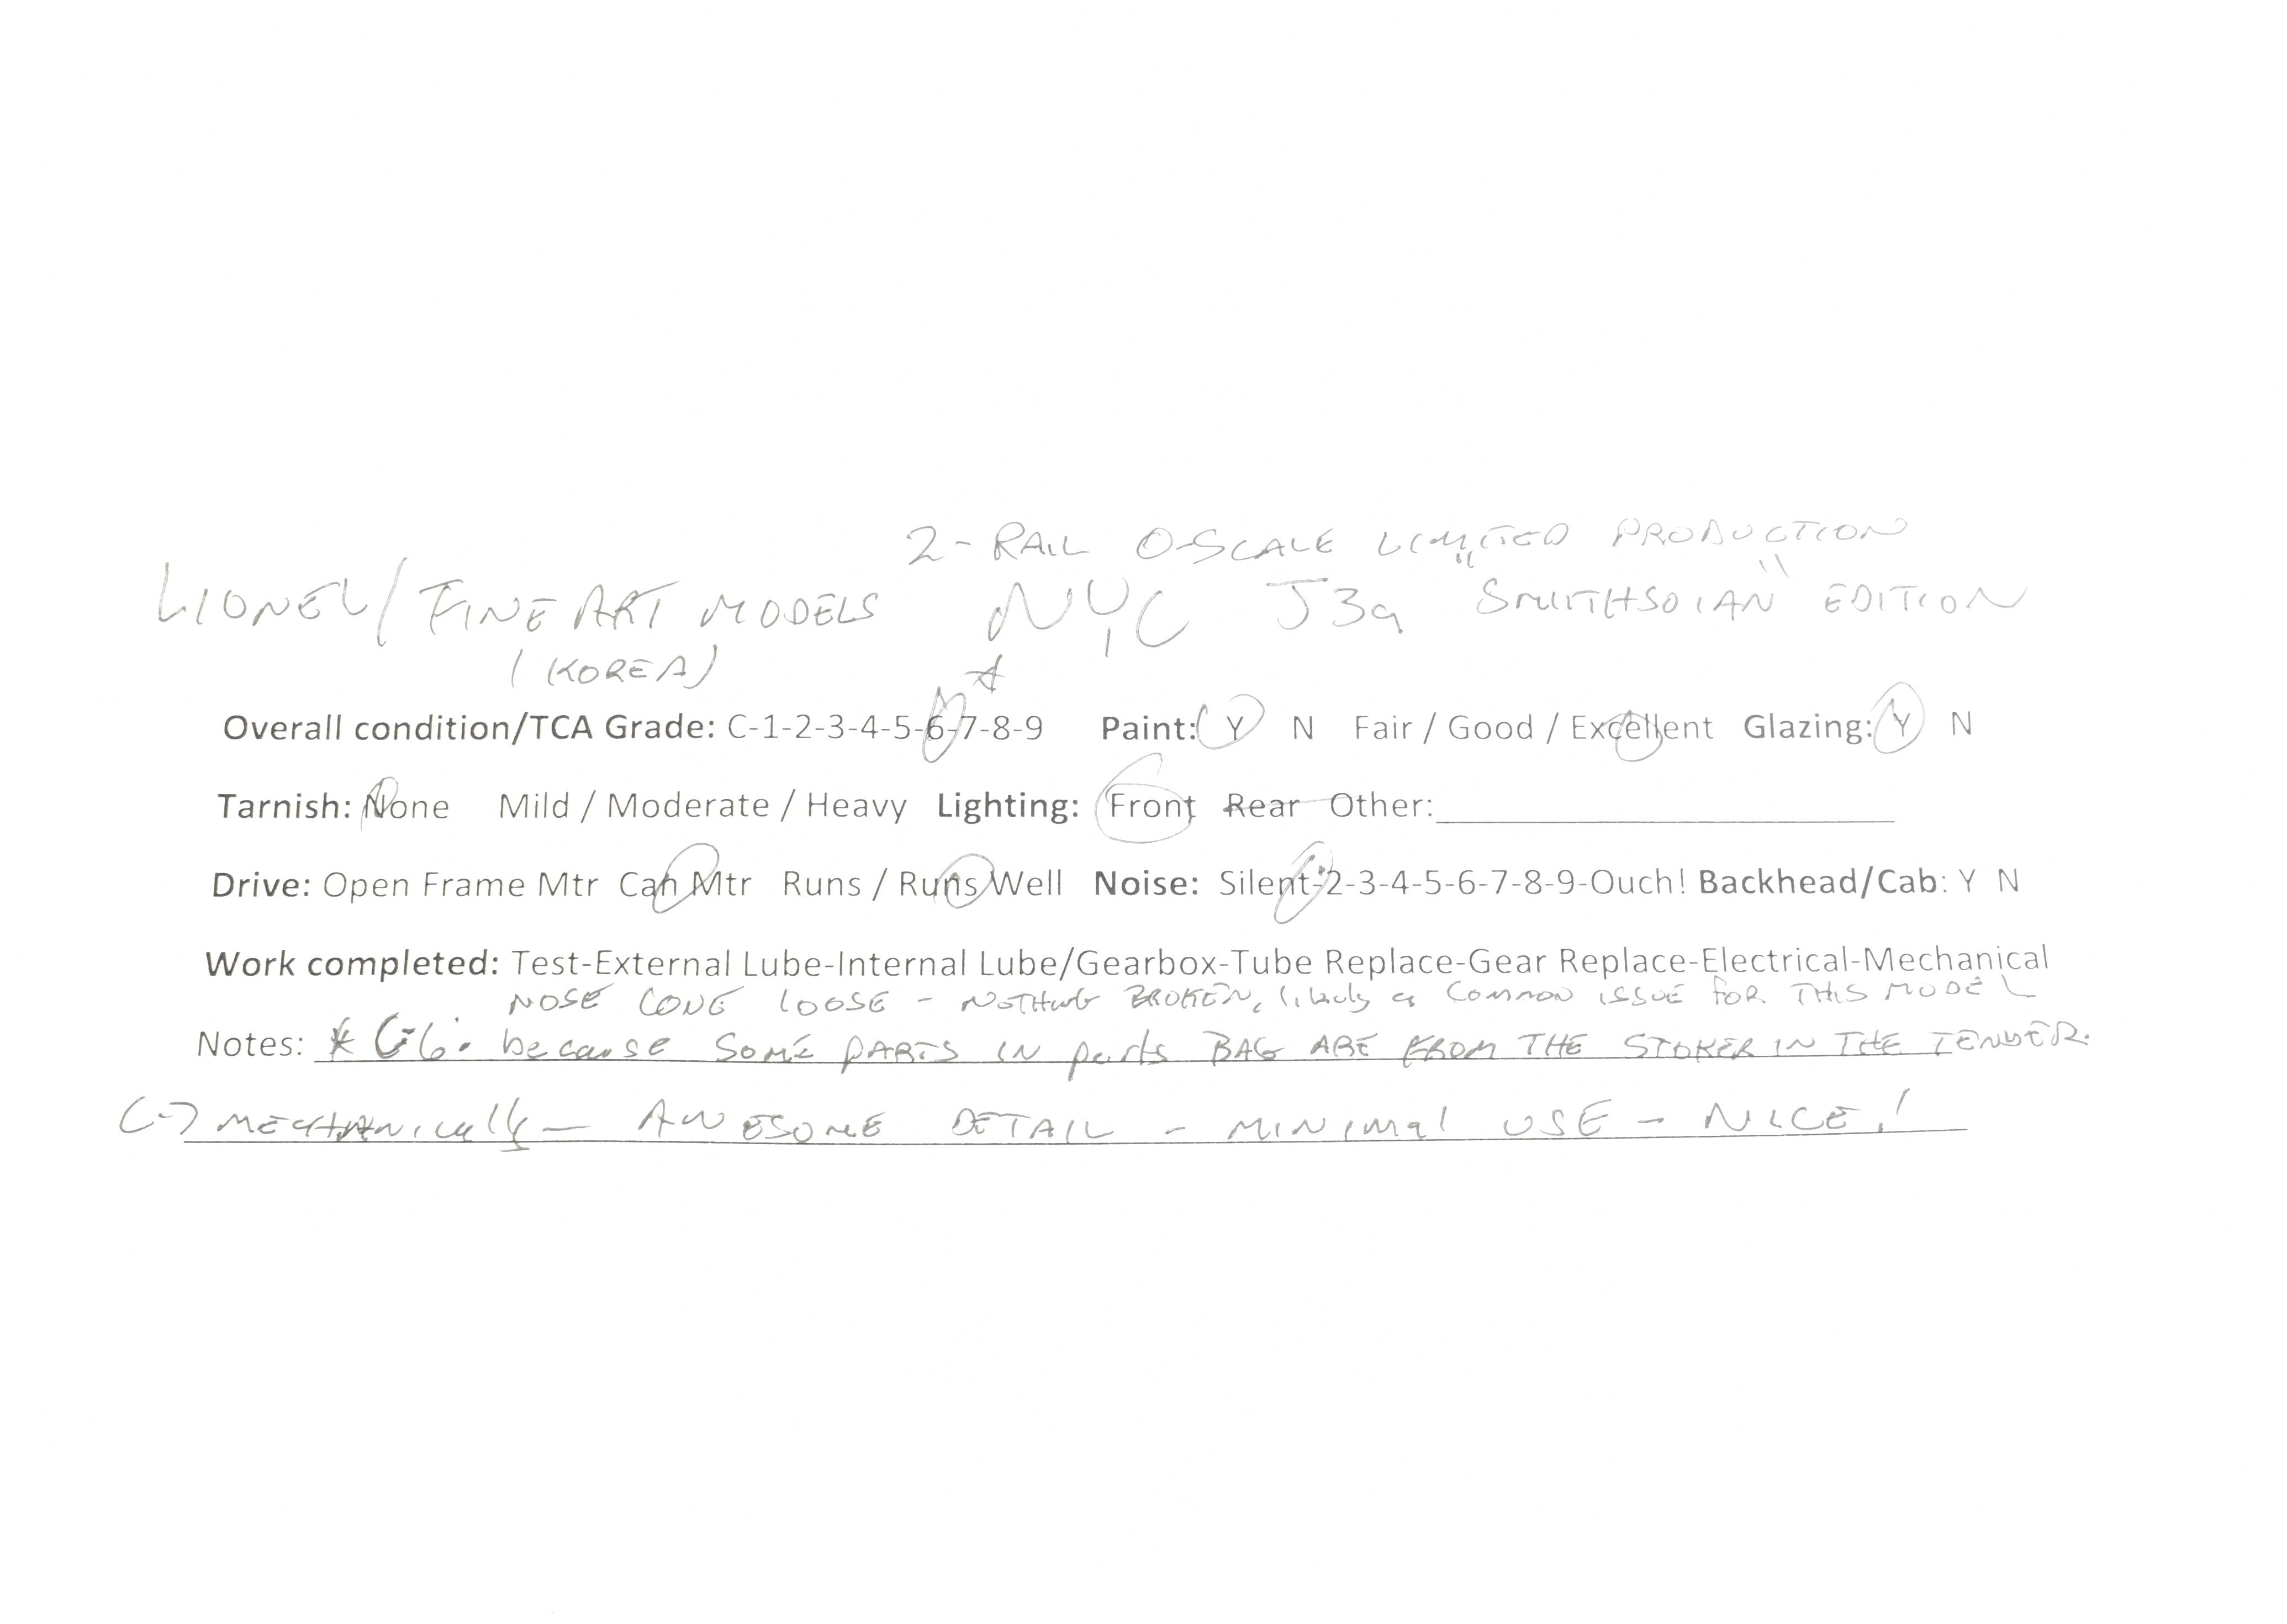 2-RAIL O-SCALE LIMITED PRODUCTION
LIONEL/FINE ART MODELS NYC J3a "SMITHSOIAN" EDITION
(KOREA) *
Overall condition/TCA Grade: C-1-2-3-4-5-6-7-8-9 Paint: Y N Fair / Good / Excellent Glazing: Y N
Tarnish: None Mild / Moderate / Heavy Lighting: Front Rear Other:
Drive: Open Frame Mtr Can Mtr Runs / Runs Well Noise: Silent-2-3-4-5-6-7-8-9-Ouch! Backhead/Cab: Y N
Work completed: Test-External Lube-Internal Lube/Gearbox-Tube Replace-Gear Replace-Electrical-Mechanical
NOSE CONE LOOSE - NOTHING BROKEN, likely a COMMON ISSUE FOR THIS MODEL
Notes: * C-6. because SOME PARTS IN parts BAG ARE FROM THE STOKER IN THE TENDER.
C-7 MECHANically - AWESOME DETAIL - MINIMAL USE - NICE!